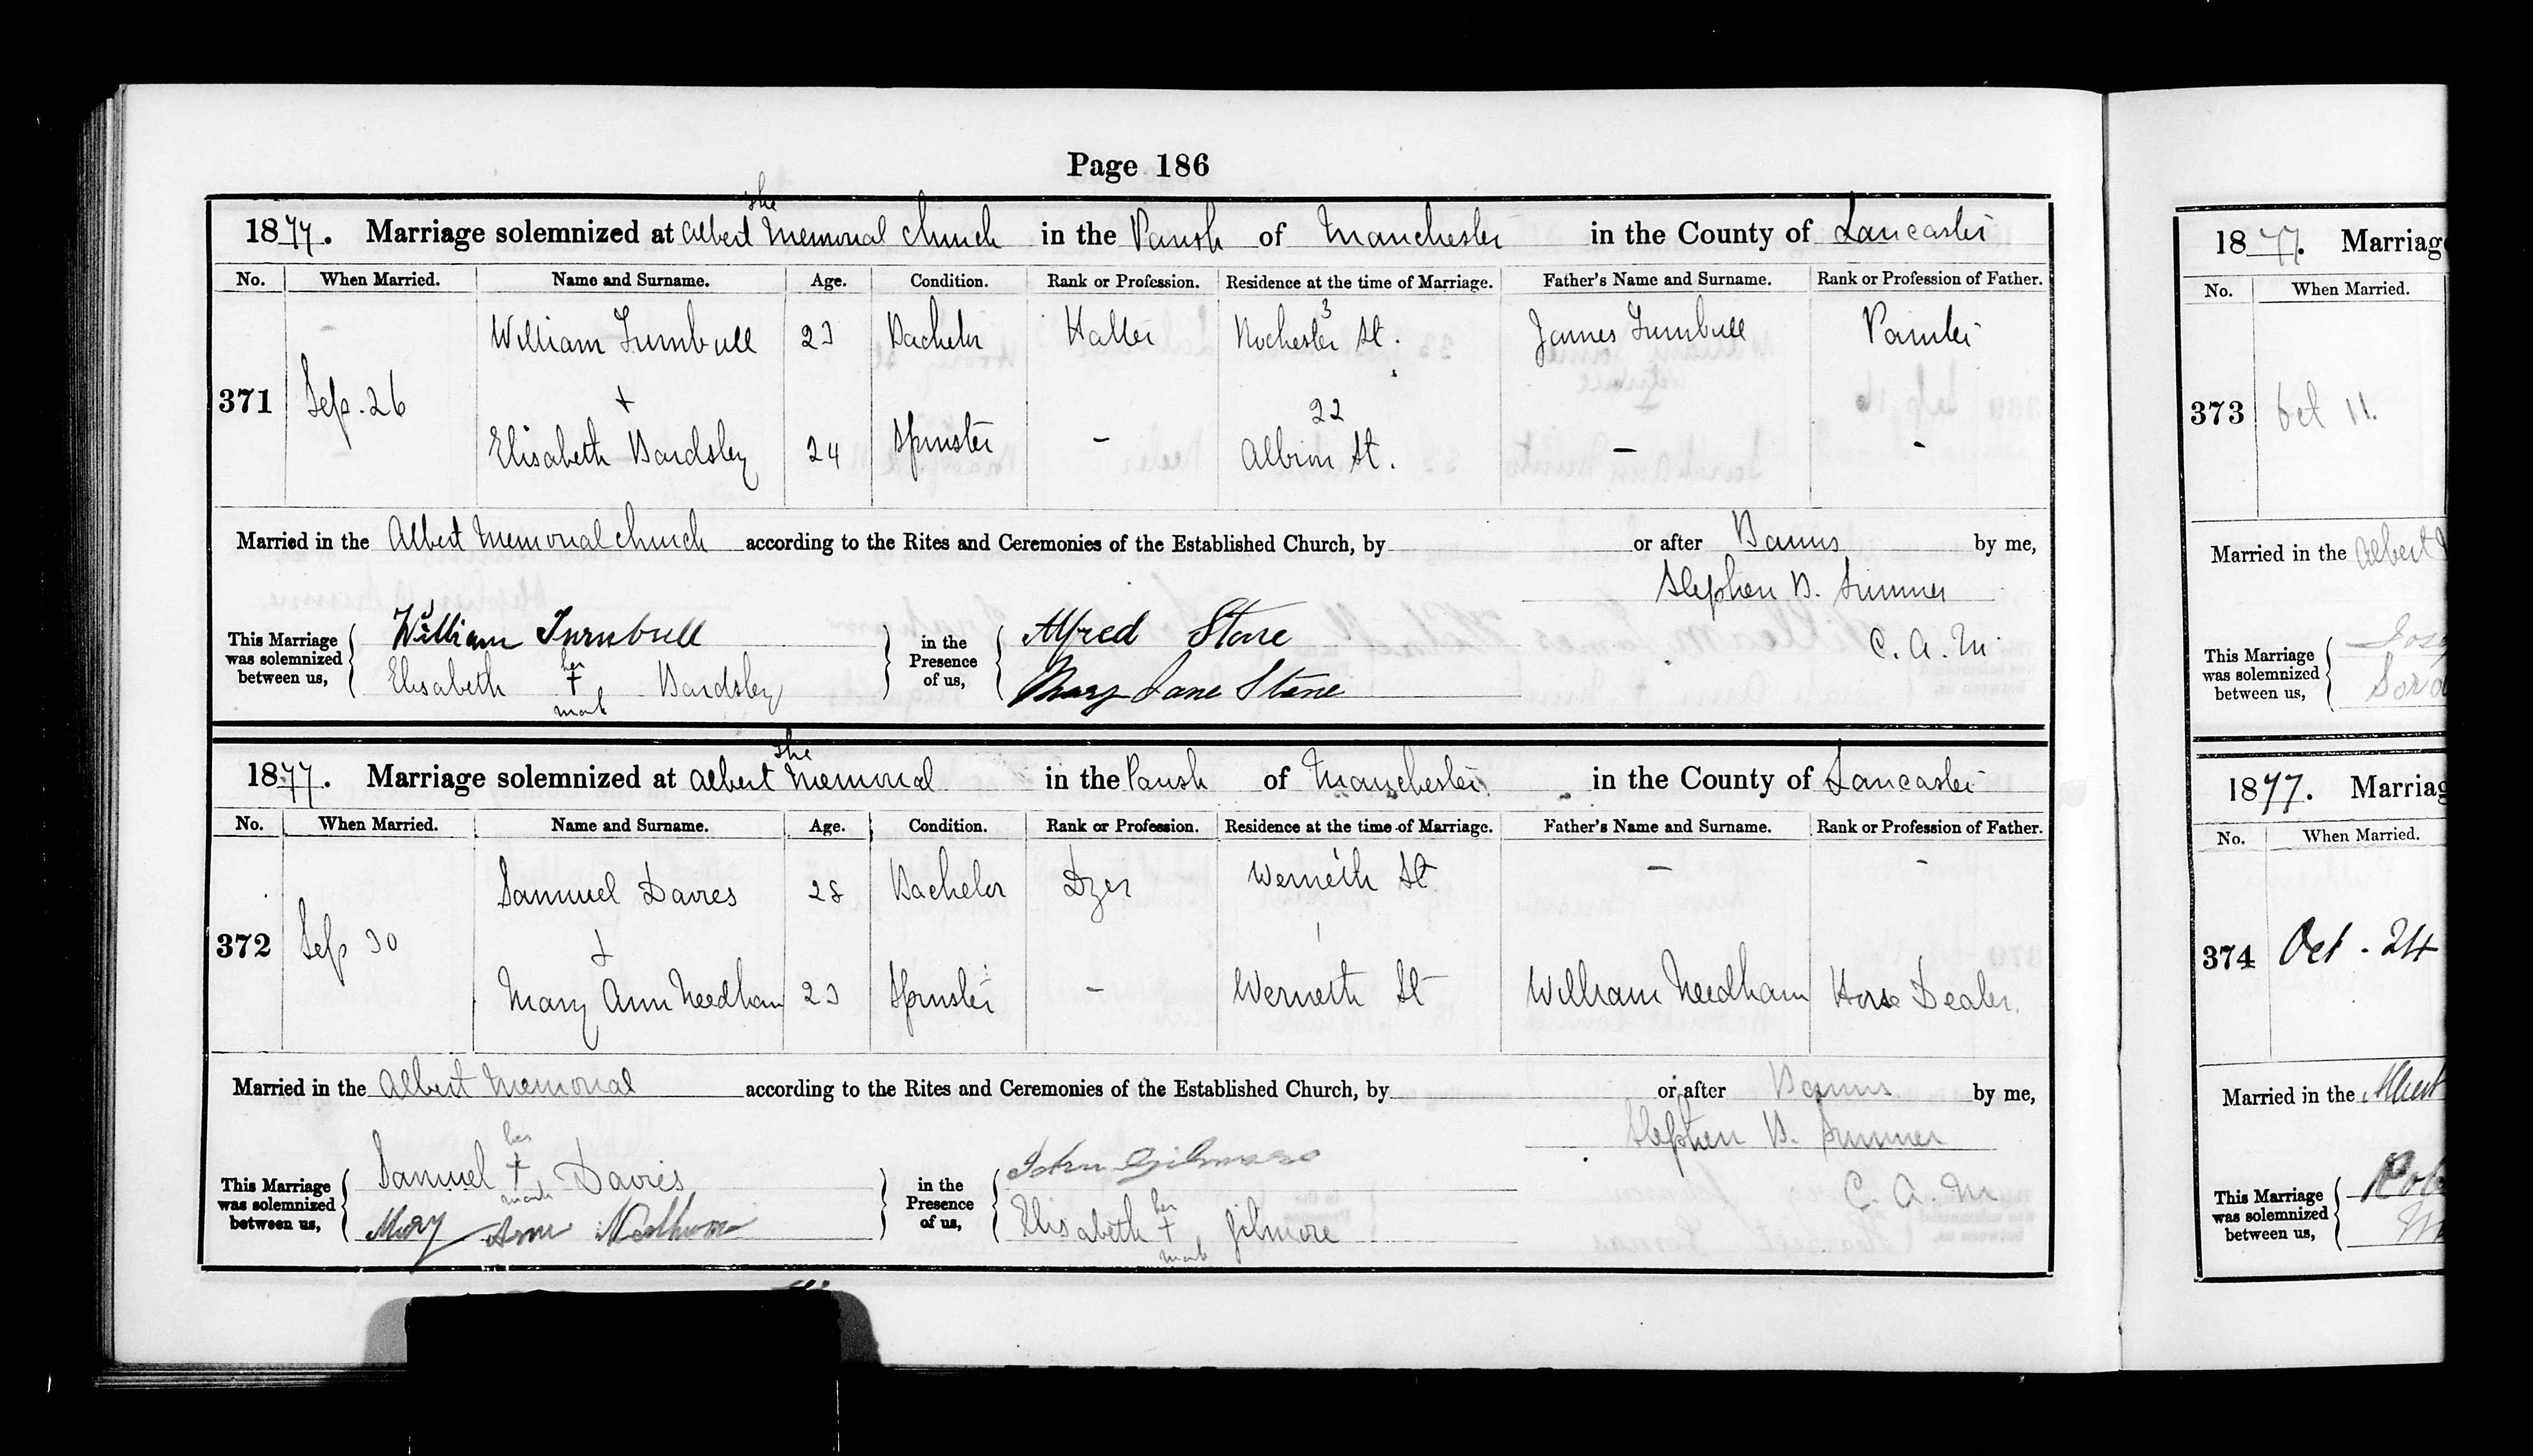 Page 186
the
1877. Marriage solemnized at Albert Memorial church in the Parish of Manchester in the County of Lancaster
No. When Married. Name and Surname. Age. Condition. Rank or Profession. Residence at the time of Marriage. Father's Name and Surname. Rank or Profession of Father.
3
William Turnbull 23 Bachelor Hatter Rochester St. James Turnbull Painter
371 Sep. 26 +
22
Elisabeth Bardsley 24 Spinster - Albion St. - -
Married in the Albert Memorial church according to the Rites and Ceremonies of the Established Church, by or after Banns by me,
Stephen B. Sumner
C. A. M
This Marriage was solemnized between us, William Turnbull in the Presence of us, Alfred Stone
Elisabeth her + mark Bardsley Mary Jane Stone
the
1877. Marriage solemnized at Albert Memorial in the Parish of Manchester in the County of Lancaster
No. When Married. Name and Surname. Age. Condition. Rank or Profession. Residence at the time of Marriage. Father's Name and Surname. Rank or Profession of Father.
Samuel Davies 28 Bachelor Dyer Werneth St - -
372 Sep 30 +
Mary Ann Needham 23 Spinster - Werneth St William Needham Horse Dealer.
Married in the Albert Memorial according to the Rites and Ceremonies of the Established Church, by or after Banns by me,
Stephen B. Sumner
C. A. M
This Marriage was solemnized between us, Samuel his + mark Davies in the Presence of us, John Gilmore
Mary Ann Needham Elisabeth her + mark Gilmore
1877. Marriag
No. When Married.
373 Oct 11.
Married in the Albert
This Marriage was solemnized between us, Jose
Sara
1877. Marriag
No. When Married.
374 Oct. 24
Married in the Albert
This Marriage was solemnized between us, Rob